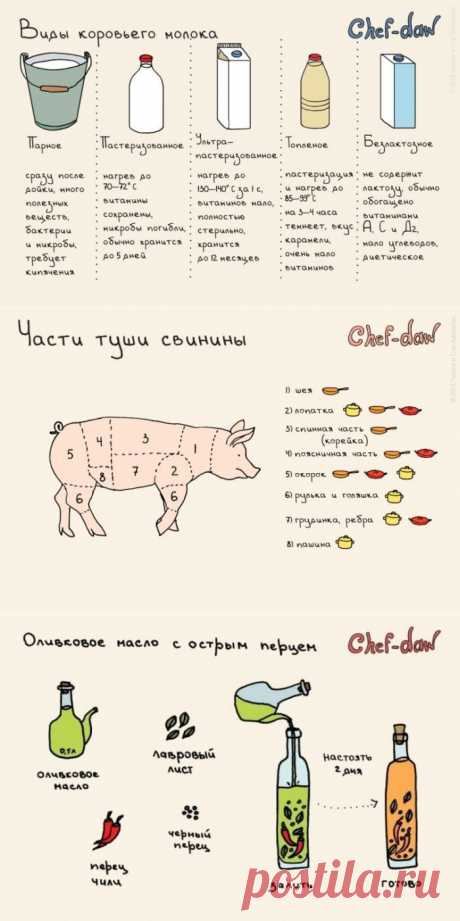 Виды коровьего молока
Chef-daw
Парное
сразу после
дойки, много
полезных
веществ,
бактерии
и микробы,
требует
кипячения
Пастеризованное
нагрев до
70-72° С
витамины
сохранены,
микробы погибли,
обычно хранится
до 5 дней
Ультра-
пастеризованное
нагрев до
130-140° С за 1 с,
витаминов мало,
полностью
стерильно,
хранится
до 12 месяцев
Топленое
пастеризация
и нагрев до
85-99° С
на 3-4 часа
темнеет, вкус
карамели,
очень мало
витаминов
Безлактозное
не содержит
лактозу, обычно
обогащено
витаминами
А, С и Д2,
мало углеводов,
диетическое
Части туши свинины
Chef-daw
1 2 3 4 5 6 7 8 6
1) шея
2) лопатка
3) спинная часть
(корейка)
4) поясничная часть
5) окорок
6) рулька и голяшка
7) грудинка, ребра
8) пашина
Оливковое масло с острым перцем
Chef-daw
0,5 л
оливковое
масло
лавровый
лист
перец
чили
черный
перец
залить
настоять
2 дня
готово
postila.ru